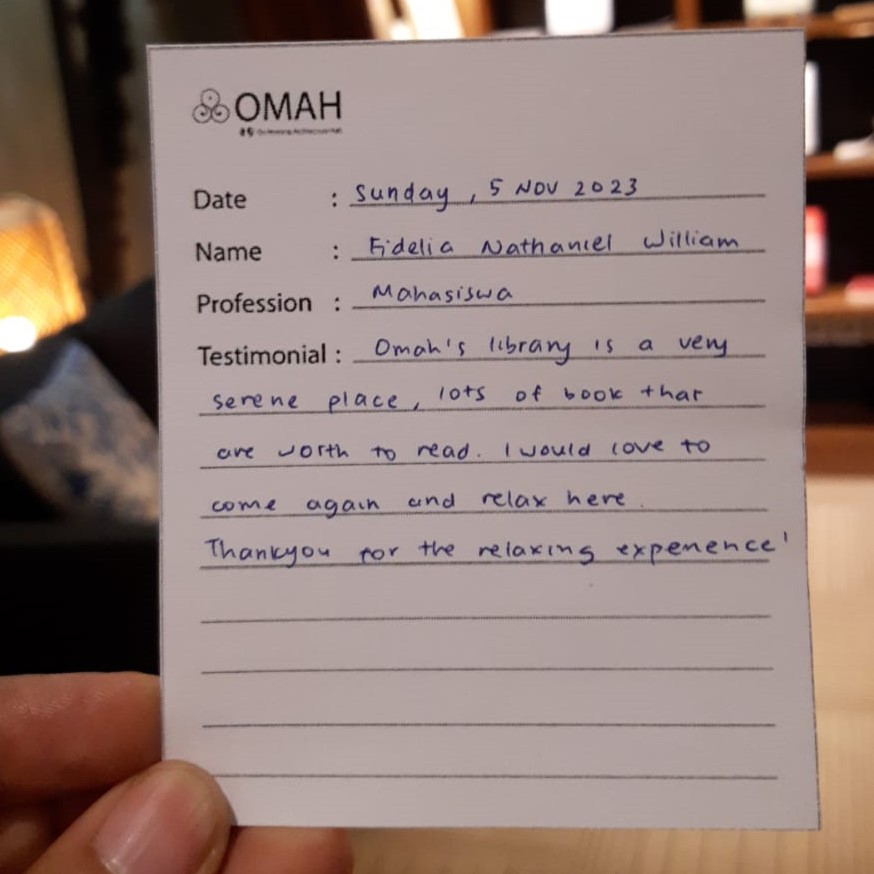 OMAH
Date : Sunday, 5 Nov 2023
Name : Fidelia Nathaniel William
Profession : Mahasiswa
Testimonial : Omah's library is a very
serene place, lots of book that
are worth to read. I would love to
come again and relax here.
Thankyou for the relaxing experience!